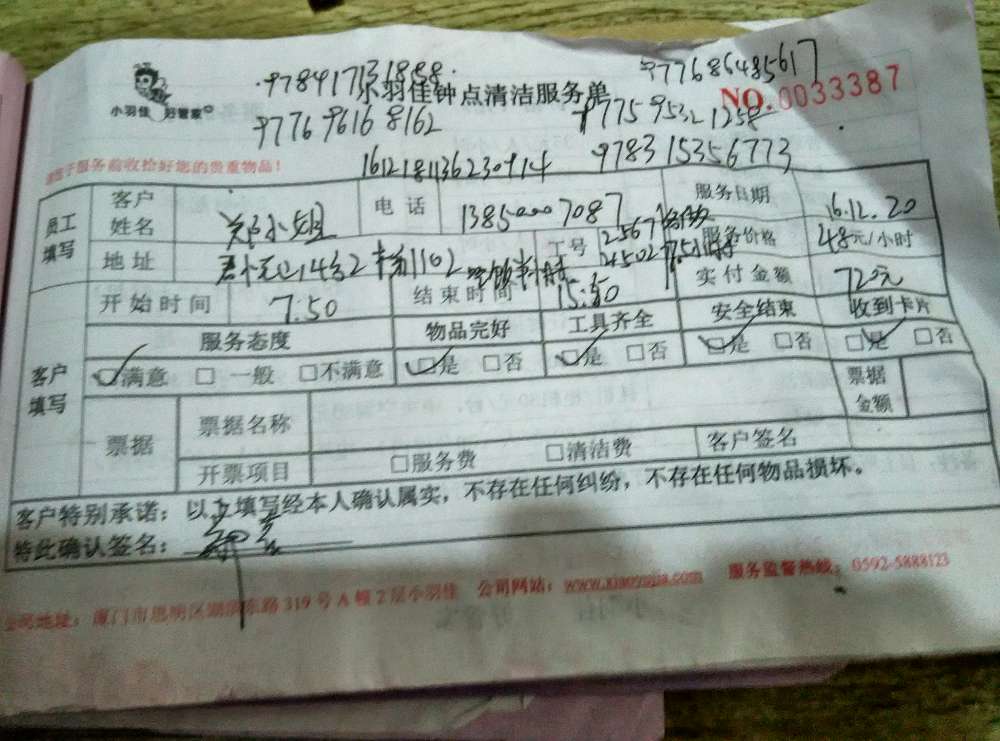 978417131858
977686485617
小羽佳 好管家
小羽佳钟点清洁服务单
NO.0033387
977696168162
977595321258
请于服务前收拾好您的贵重物品！
1612181136230914
978315356773
员工填写
客户姓名 小姐 电话 服务日期 16.12.20
地址 工号 服务价格 48元/小时
开始时间 7:50 结束时间 15:50 实付金额 720元
服务态度 物品完好 工具齐全 安全结束 收到卡片
客户填写
☑满意 □一般 □不满意 ☑是 □否 ☑是 □否 ☑是 □否 ☑是 □否
票据 票据名称 票据金额
开票项目 □服务费 □清洁费 客户签名
客户特别承诺：以上填写经本人确认属实，不存在任何纠纷，不存在任何物品损坏。
特此确认签名：
公司地址：厦门市思明区湖滨东路319号A幢2层小羽佳 公司网站：www.xiaoyujia.com 服务监督热线：0592-5888123